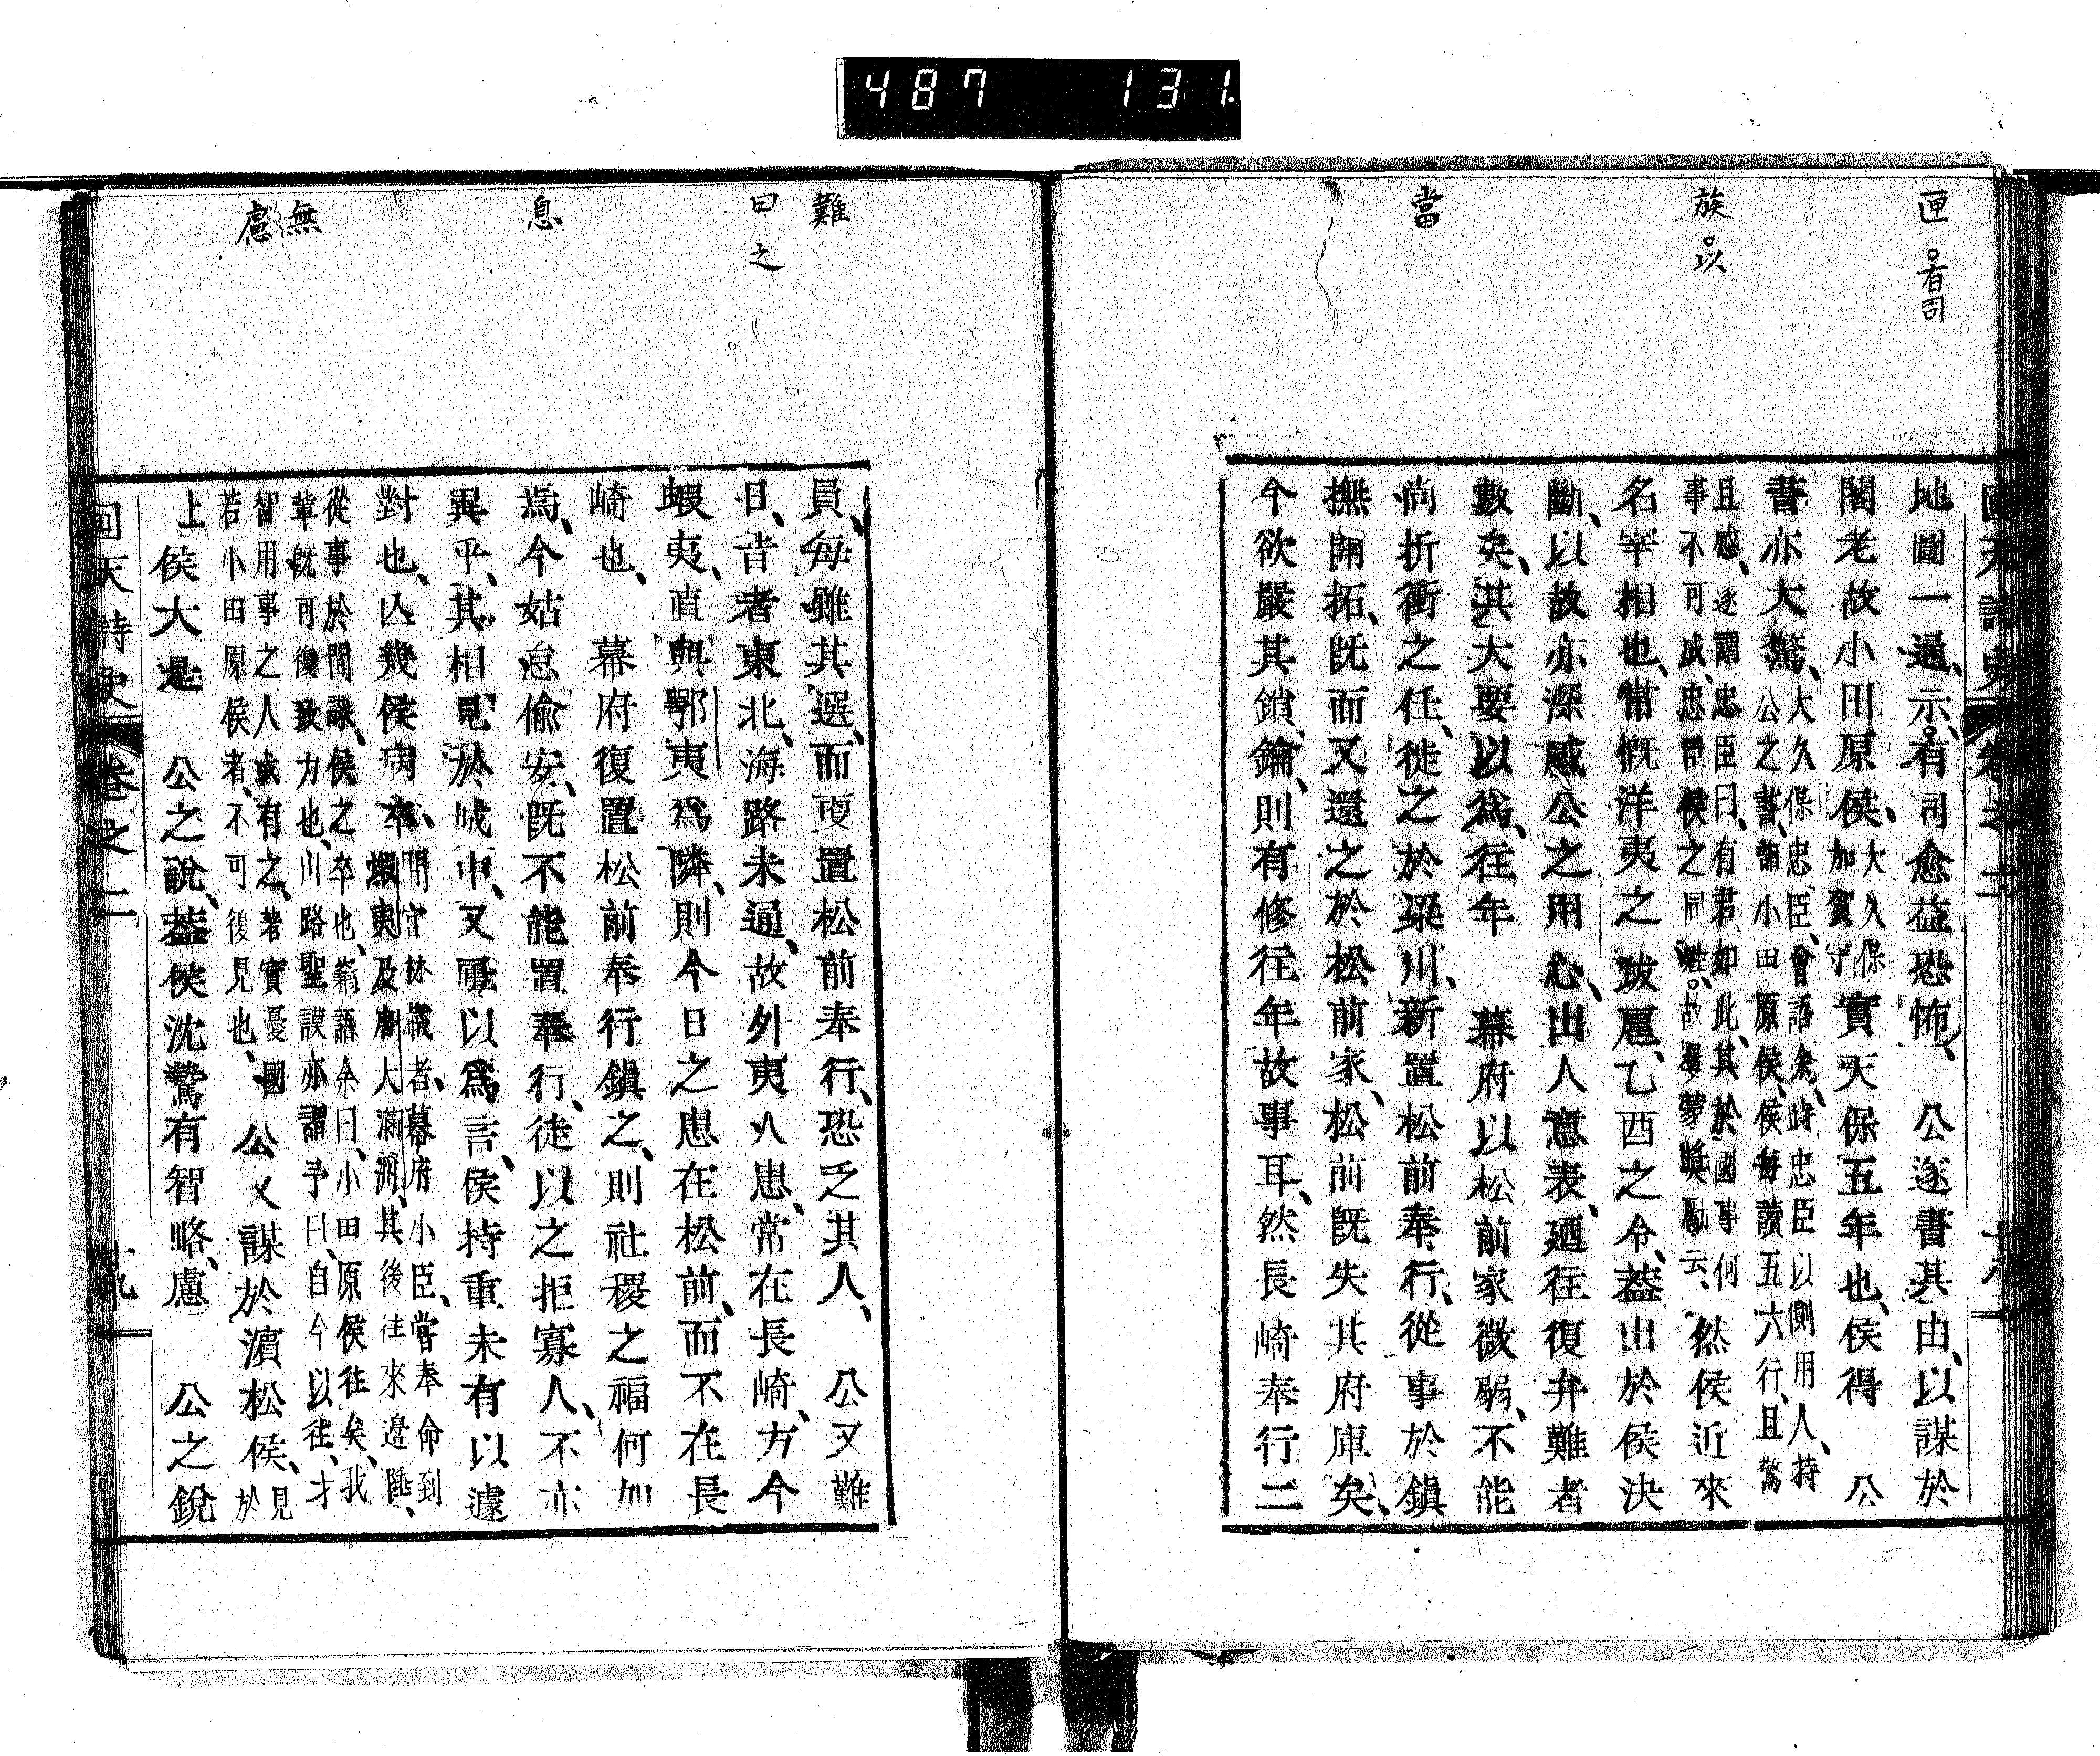 487 131
匣 有司
族 以
當
地圖一通、示、有司愈益恐怖、 公遂書其由、以謀於
閣老故小田原侯、大久保加賀守實天保五年也、侯得 公
書亦大驚、大久保忠臣、會語余、時忠臣以側用人、持公之書、詣小田原侯、侯每讀五六行、且驚
且感、遂謂忠臣曰、有君如此、其於國事何事不可成、忠臣侯之同姓、故還蒙獎勵云、然侯近來
名宰相也、常慨洋夷之跋扈、乙酉之令、蓋出於侯決
斷、以故亦深感公之用心、出人意表、廼往復弁難者
數矣、其大要以爲、往年 幕府以松前家微弱、不能
尚折衝之任、徙之於梁川、新置松前奉行、從事於鎮
撫開拓、既而又還之於松前家、松前既失其府庫矣、
今欲嚴其鎖鑰、則有修往年故事耳、然長崎奉行二
難
曰之
息
無慮
員、每難其選、而更置松前奉行、恐乏其人、 公又難
曰、昔者東北、海路未通、故外夷之患、常在長崎、方今
蝦夷、直與鄂夷爲隣、則今日之患在松前、而不在長
崎也、 幕府復置松前奉行鎮之、則社稷之福何如
焉、今姑怠偷安、既不能置奉行、徒以之拒寡人、不亦
異乎、其相見於城中、又亟以爲言、侯持重未有以遽
對也、亡幾侯病卒、間宮林藏者、幕府小臣、嘗奉命到蝦夷及唐大滿洲、其後往來邊陲、
從事於間諜、侯之卒也、竊語余曰、小田原侯往矣、我輩既可復致力也、川路聖謨亦謂予曰、自今以往、才
智用事之人或有之、著實憂國若小田原侯者、不可復見也、 公又謀於濱松侯、見於
上侯大是 公之說、蓋侯沈鷙有智略、慮 公之銳
回天詩史 卷之二